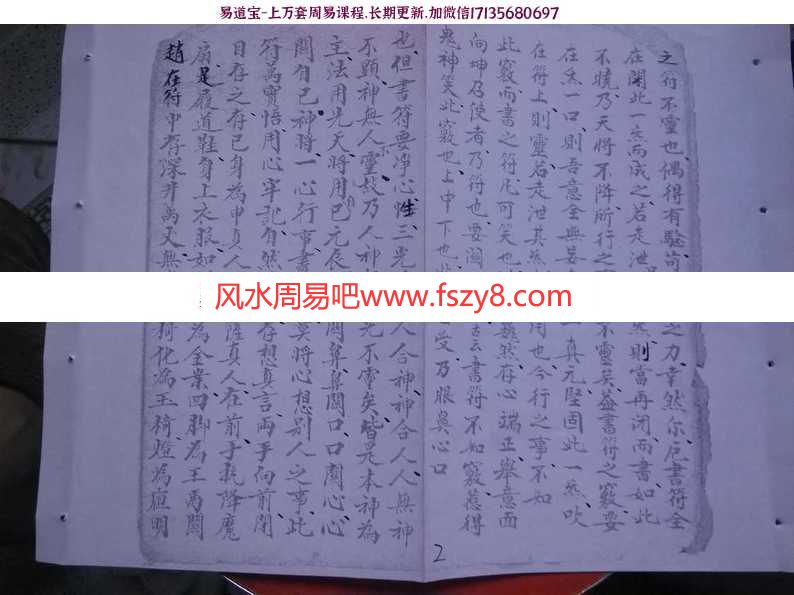 易道宝-上万套周易课程.长期更新.加微信17135680697
之符不灵也偶得有驗苟之力幸然尔凡書符全
在閉此一炁而成之若走泄炁則當再闭而書如此
不曉乃天將不降所行之不靈矣蓋書符之竅要
在炁一口則吾意全無一真元堅固此一炁吹
在符上則靈若走泄其用也今行之事不如
此竅而書之符凡可笑也默然存心端正舉意面
向坤乃使者乃符也要云書符不如竅惹得
鬼神笑此竅也上中下也乃眼鼻心口
也但書符要净心性三光人合神神合人人無神
不顕神無人不靈故乃人神光不靈矣皆是本神為
主法用先天將用已元辰関鼻関口口関心心
関自己神將一心行事書莫將心想别人之事此
符萬寶悟用心牢記自然存想真言両手向前閉
目存之存已身為中真人薩真人在前手執降魔
扇足履道鞋身上衣服如為金業四脚為王馬関
趙在符中有深井萬丈無椅化為玉椅燈為
风水周易吧www.fszy8.com
2